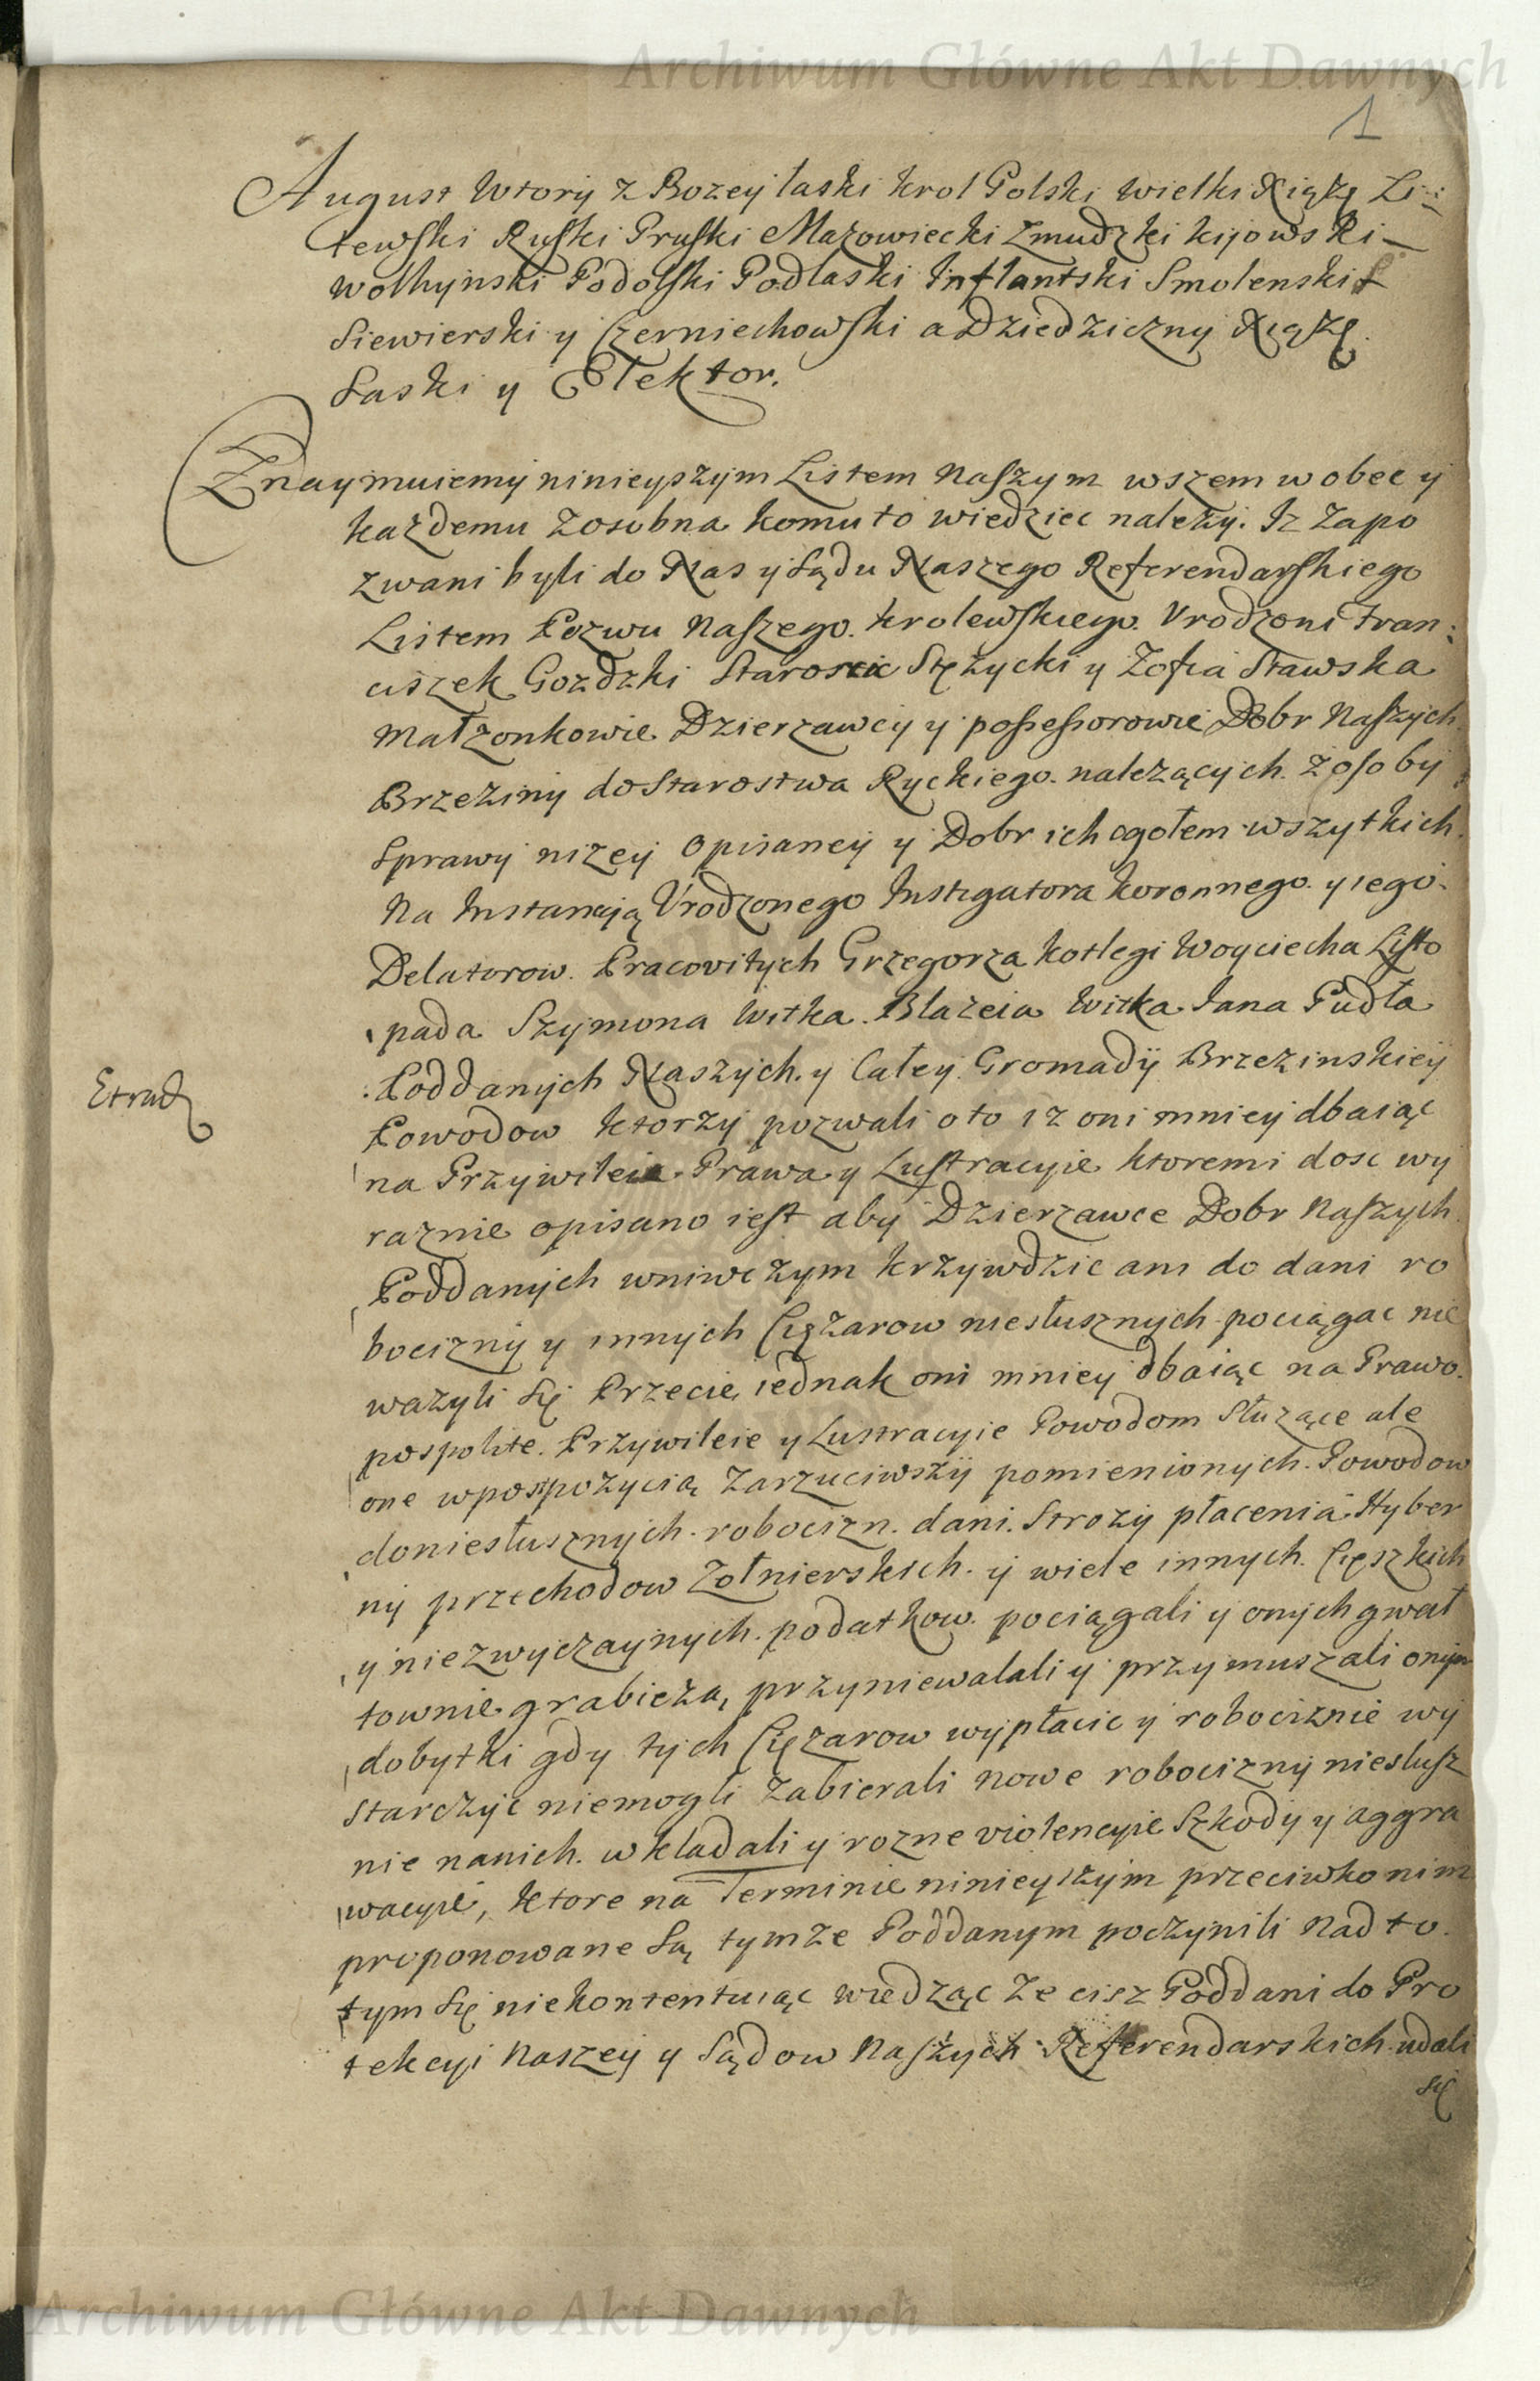 Archiwum Główne Akt Dawnych
1
August Wtory z Bozey łaski Krol Polski Wielki Xiąże Li=
tewski Ruski Pruski Mazowiecki Zmudzki Kijowski
Wołhynski Podolski Podlaski Inflantski Smolenski
Siewierski y Czerniechowski a Dziedziczny Xiąże
Saski y Elektor.
Znaymuiemy ninieyszym Listem Naszym wszem wobec y
kazdemu zosobna komu to wiedziec nalezy. Iz zapo
zwani byli do Nas y Sądu Naszego Referendarskiego
Listem Pozwu Naszego Krolewskiego Vrodzoni Fran=
ciszek Gozdzki Staroscic Stęzycki y Zofia Stawska
Małzonkowie Dzierzawcy y possessorowie Dobr Naszych
Brzeziny do Starostwa Ryckiego nalezących z osoby
Sprawy nizey opisaney y Dobr ich ogołem wszytkich
Na Instancyią Vrodzonego Instigatora Koronnego y iego
Delatorow Pracovitych Grzegorza Kotlegi Woyciecha Listo
pada Szymona Witka Błazeia Witka Jana Pudła
Poddanych Naszych y Całey Gromady Brzezinskiey
Etrad
Powodow ktorzy pozwali o to iz oni mniey dbaiąc
na Przywileia Prawa y Lustracyie ktoremi dosc wy
raznie opisano iest aby Dzierzawce Dobr Naszych
Poddanych wniwczym krzywdzic ani do dani ro
bocizny y innych Cięzarow niesłusznych pociągac nie
wazyli się Przecie iednak oni mniey dbaiąc na Prawo
pospolite Przywileie y Lustracyie Powodom słuzące ale
one wpospozycią zarzuciwszy pomienionych Powodow
do niesłusznych robocizn. dani. Strozy płacenia Hyber
ny przechodow Zołnierskich y wiele innych Cięszkich
y niezwyczaynych podatkow pociągali y onych gwał
townie grabieza, przyniewalali y przymuszali onym
dobytki gdy tych Cięzarow wypłacic y robociznie wy
starczyc niemogli zabierali nowe robocizny nieslusz
nie nanich wkladali y rozne violencyie Szkody y aggra
wacyie, ktore na Terminie ninieyszym przeciwko nim
proponowane są tymze Poddanym poczynili Nad to
tym się niekontentuiąc wiedząc ze cisz Poddani do Pro
tekcyi Naszey y Sądow Naszych Referendarskich udali
się
Archiwum Główne Akt Dawnych